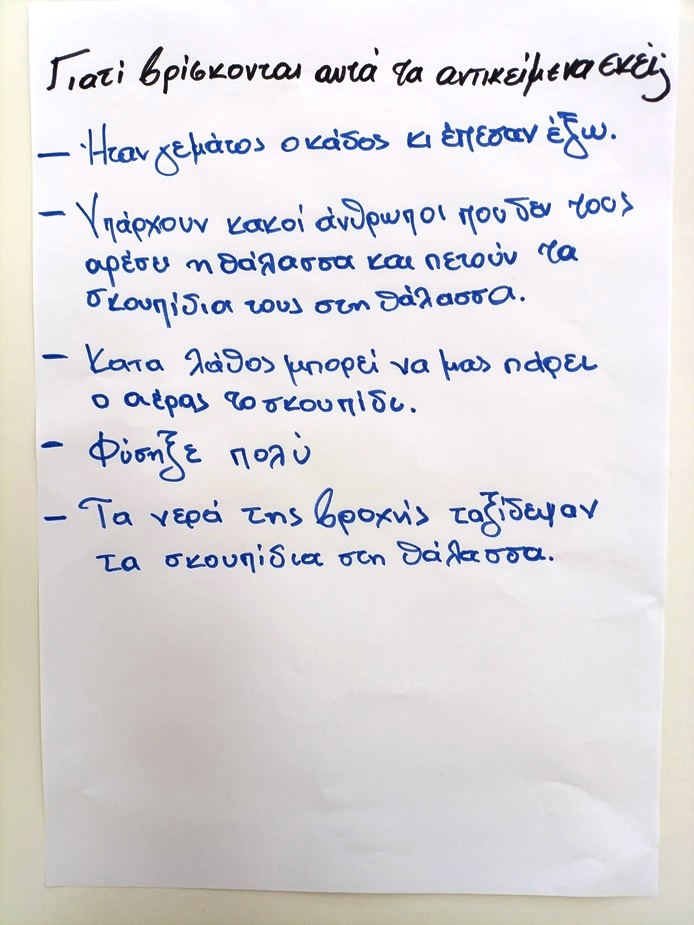 Γιατί βρίσκονται αυτά τα αντικείμενα εκεί;
— Ήταν γεμάτος ο κάδος κι έπεσαν έξω.
- Υπάρχουν κακοί άνθρωποι που δεν τους
αρέσει η θάλασσα και πετούν τα
σκουπίδια τους στη θάλασσα.
- Κατα λάθος μπορεί να μας πάρει
ο αέρας το σκουπίδι.
- Φύσηξε πολύ
- Τα νερά της βροχής ταξίδεψαν
τα σκουπίδια στη θάλασσα.